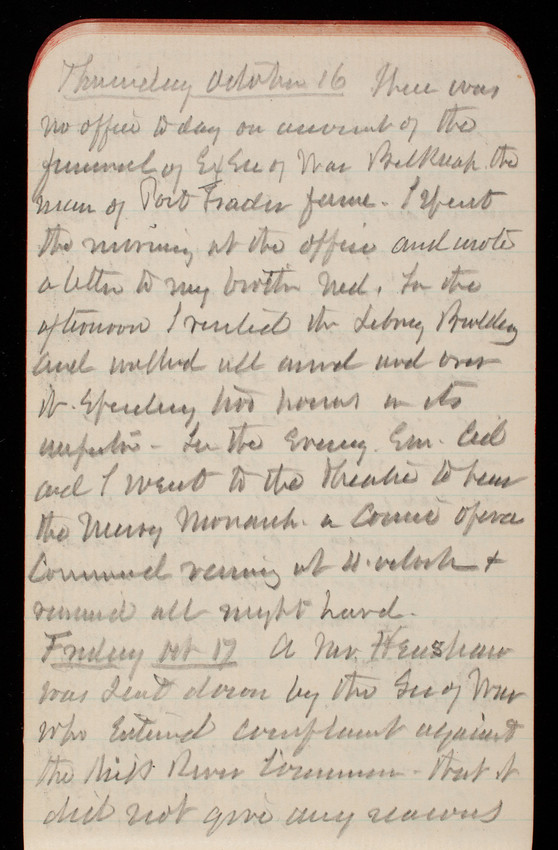 Thursday October 16 There was
no office today on account of the
funeral of Ex Sec of War Belknap. the
man of Post Trader fame. I spent
the morning at the office and wrote
a letter to my brother Ned. In the
afternoon I visited the Library Building
and walked all around and over
it. Spending two hours in its
inspection - In the Evening Em. Ceil
and I went to the Theatre to hear
the Merry Monarch. a Comic Opera
Commenced raining at 4.oclock &
rained all night hard.
Friday Oct 17 A Mr. Henshaw
was sent down by the Sec of War
who Entered complaint against
the Miss River Commn - that it
did not give any reasons